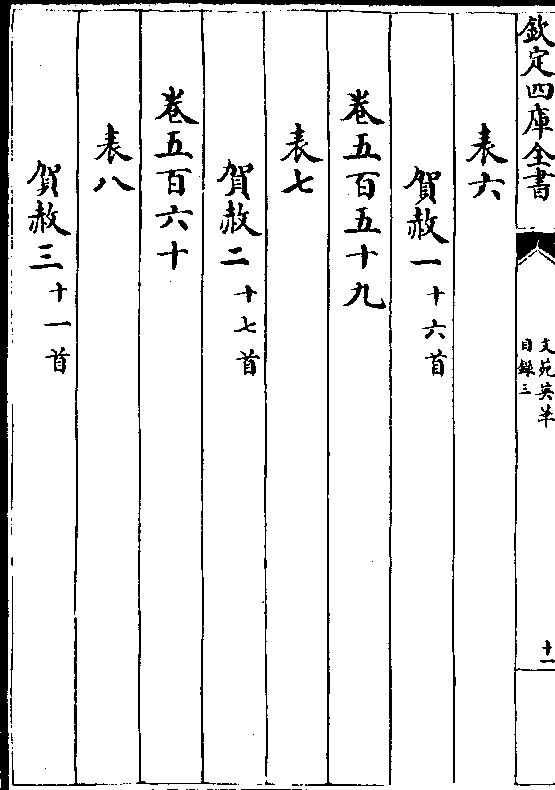 欽定四庫全書
文苑英華
目錄三
十一
表六
賀赦一十六首
卷五百五十九
表七
賀赦二十七首
卷五百六十
表八
賀赦三十一首